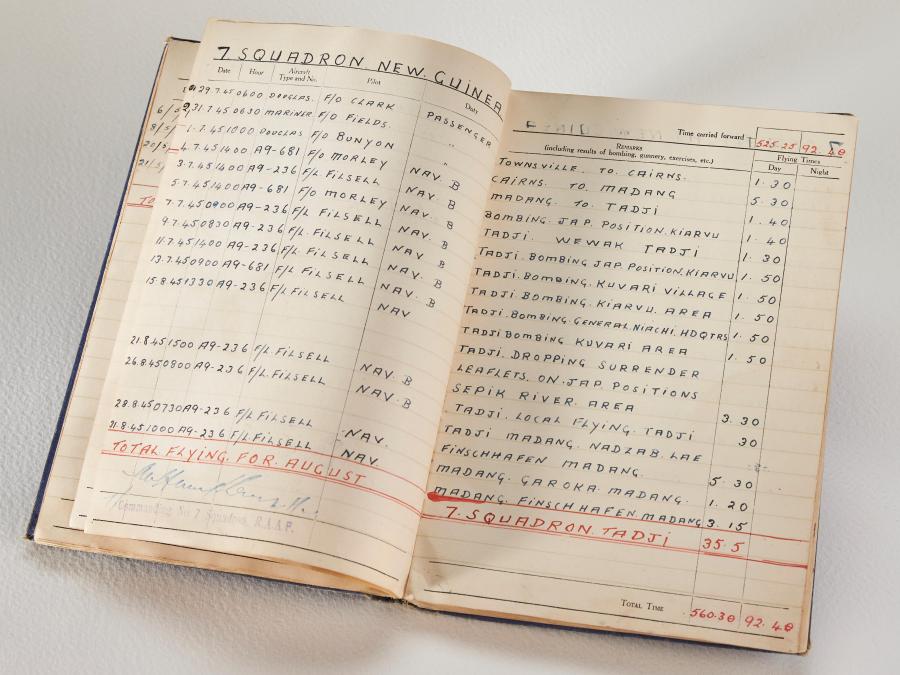 7 SQUADRON. NEW. GUINEA
Date Hour Aircraft Type and No. Pilot Duty
29.7.45 0600 DOUGLAS. F/O CLARK PASSENGER
31.7.45 0630 MARINER F/O FIELDS. "
1.7.45 1000 DOUGLAS F/O BUNYON "
1400 A9-681 F/O MORLEY NAV. B
3.7.45 1400 A9-236 F/L FILSELL NAV. B
5.7.45 1400 A9-681 F/O MORLEY NAV. B
7.7.45 0900 A9-236 F/L FILSELL NAV B
9.7.45 0830 A9-236 F/L FILSELL NAV.
11.7.45 1400 A9-236 F/L FILSELL NAV. B
13.7.45 0900 A9-681 F/L FILSELL NAV
15.8.45 1330 A9-236 F/L FILSELL
21.8.45 1500 A9-236 F/L FILSELL NAV. B
26.8.45 0800 A9-236 F/L FILSELL NAV. B
28.8.45 0730 A9-236 F/L FILSELL NAV.
31.8.45 1000 A9-236 F/L FILSELL NAV
TOTAL FLYING. FOR. AUGUST
Commanding No. 7 Squadron, R.A.A.F.
Time carried forward 525.25 92.40
Remarks
(including results of bombing, gunnery, exercises, etc.)
Flying Times
Day Night
TOWNSVILLE. TO. CAIRNS. 1. 30
CAIRNS. TO. MADANG 5. 30
MADANG TO. TADJI 1. 40
BOMBING. JAP. POSITION. KIARVU 1. 40
TADJI. WEWAK TADJI 1. 30
TADJI. BOMBING JAP. POSITION. KIARVU 1. 50
TADJI. BOMBING. KUVARI VILLAGE 1. 50
TADJI BOMBING. KIARVU. AREA 1. 50
TADJI. BOMBING. GENERAL NIACHI. HDQTRS 1. 50
TADJI BOMBING KUVARI AREA
TADJI. DROPPING SURRENDER
LEAFLETS. ON. JAP. POSITIONS
SEPIK RIVER. AREA 3. 30
TADJI. LOCAL FLYING. TADJI 30
TADJI MADANG. NADZAB. LAE
FINSCHHAFEN MADANG. 5. 30
MADANG. GAROKA. MADANG. 1. 20
MADANG. FINSCHHAFEN. MADANG 3. 15
7. SQUADRON. TADJI 35. 5
Total Time 560.30 92.40